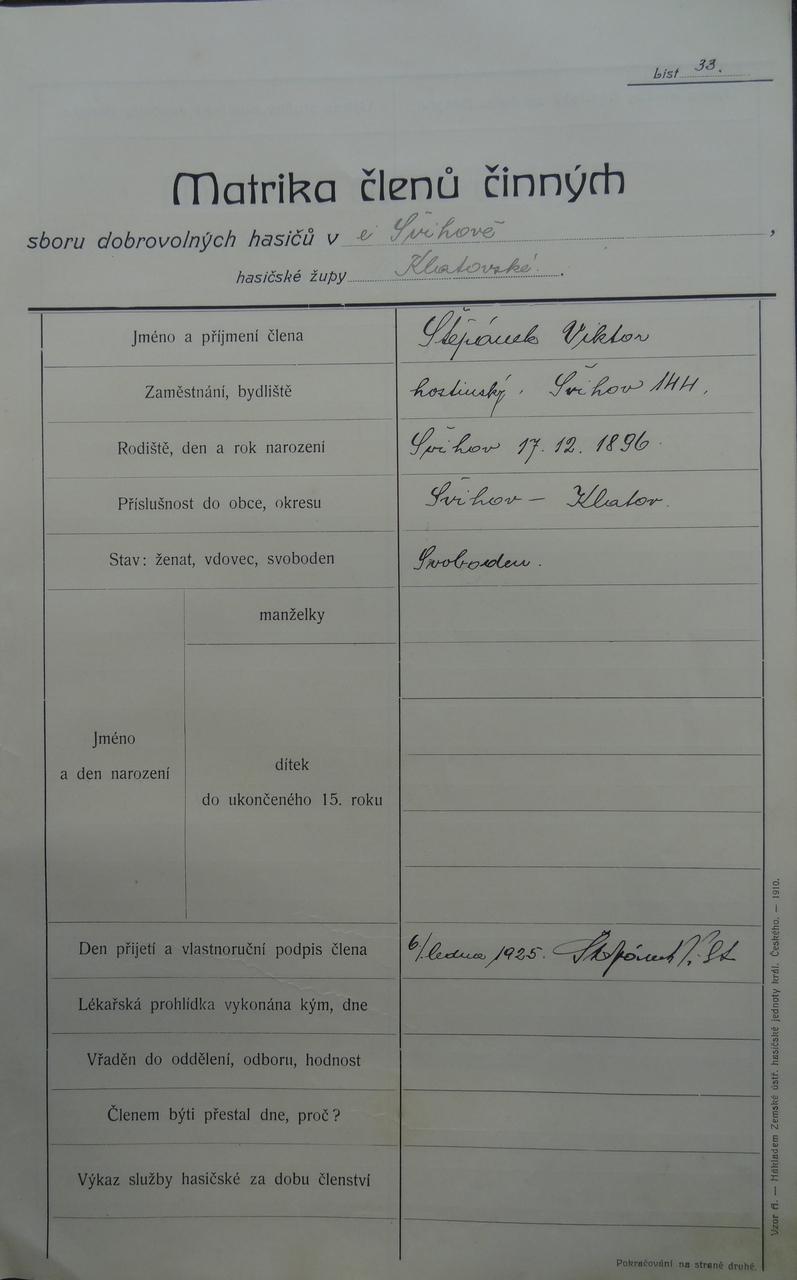 List 33.
Matrika členů činných
sboru dobrovolných hasičů v Švihově,
hasičské župy Klatovské.
Jméno a příjmení člena Štěpánek Viktor
Zaměstnání, bydliště hostinský, Švihov 144.
Rodiště, den a rok narození Švihov 17. 12. 1896.
Příslušnost do obce, okresu Švihov – Klatov.
Stav: ženat, vdovec, svoboden Svoboden.
manželky
Jméno
a den narození
dítek
do ukončeného 15. roku
Den přijetí a vlastnoruční podpis člena 6/ledna 1925. Štěpánek
Lékařská prohlídka vykonána kým, dne
Vřaděn do oddělení, odboru, hodnost
Členem býti přestal dne, proč?
Výkaz služby hasičské za dobu členství
Pokračování na straně druhé.
Vzor A. — Nákladem Zemské ústř. hasičské jednoty král. Českého. — 1910.